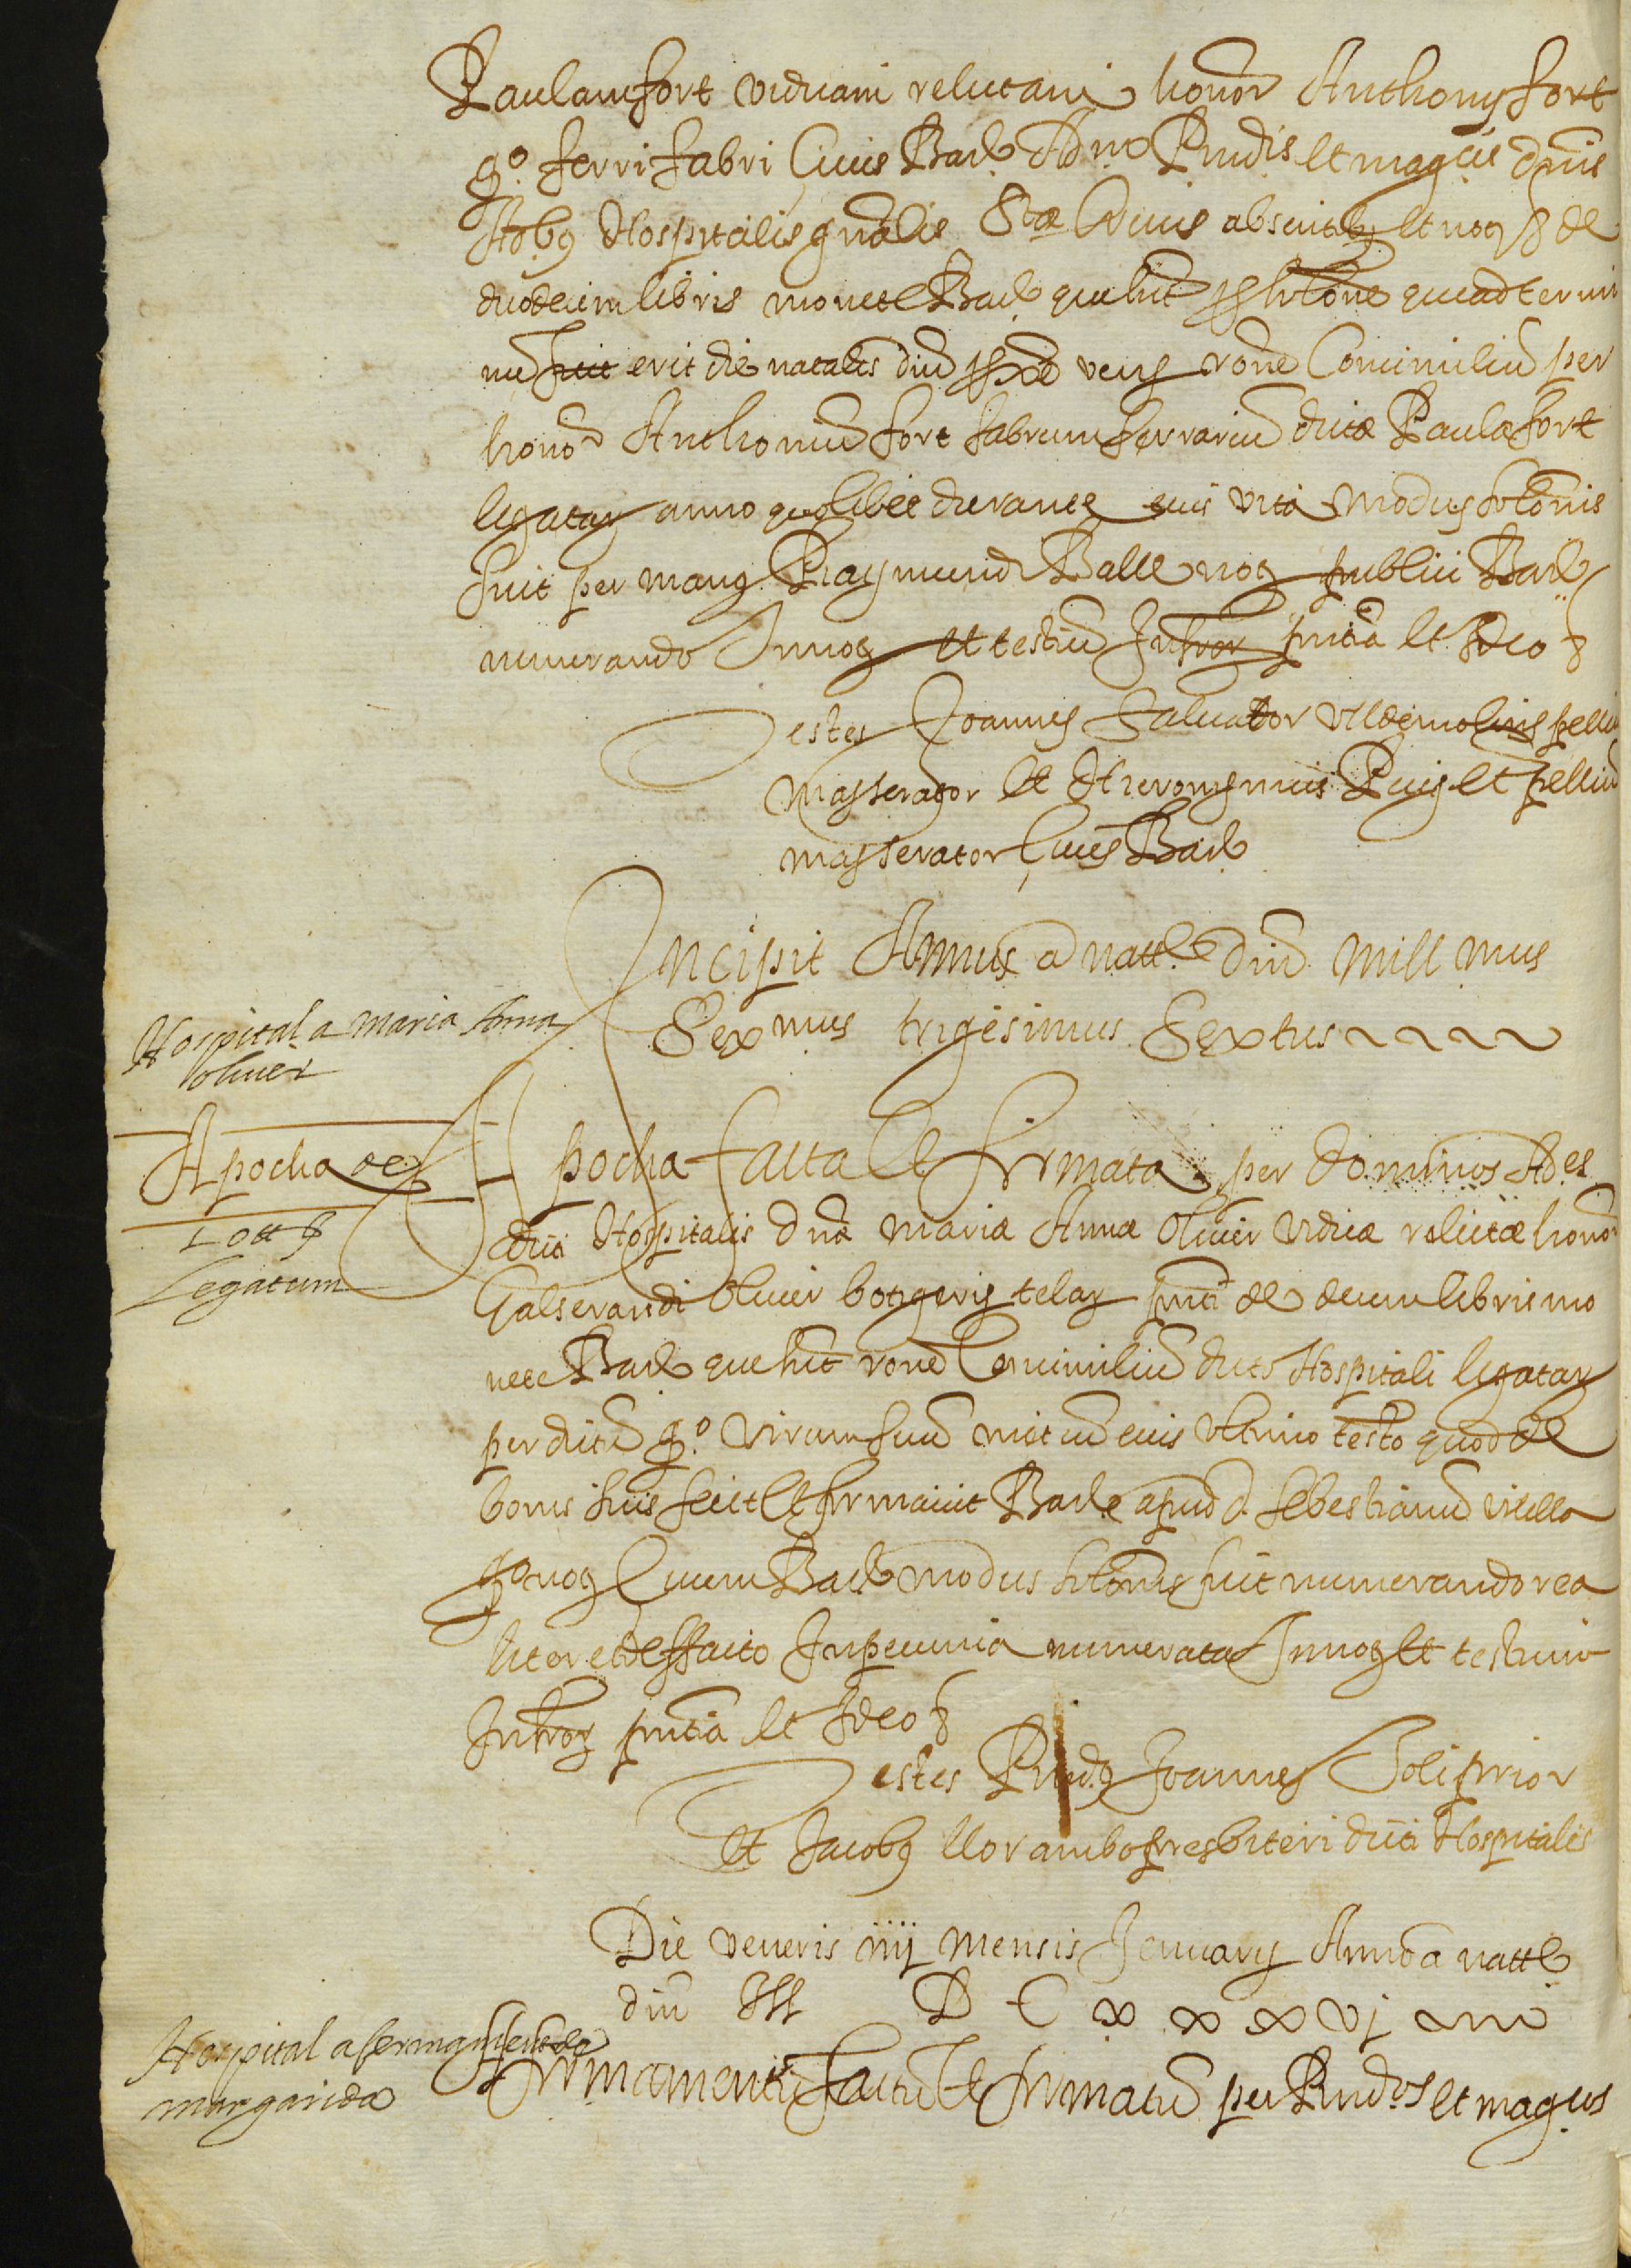 Paulam fort viduam relictam honor Anthonij fort
qº ferri fabri Civis Barᵉ Admº Rndis et magcis dnis
Adbq Hospitalis gnalis Stæ Crucis absentibq et noᵣ & de
duodecim libris monete Barᵉ que sunt pro solone que ad termi
nu fuit erit die natalis dni pxe venᵣ rone Consimiliu per
honor Anthoniu fort fabrum ferrariu dictæ Paulæ fort
legatarᵣ anno quolibet durante eius vita modus solonis
fuit per manq Raymundi Batlle noᵣ publici Barᵉ
numerando In noᵣ et testiu Infror pntia et Ideo &
Testes Joannes Saluador Vildemolins pelliu
masserator et Hieronymus Puig et pelliu
masserator Cives Barᵉ
Incipit Annus a natte dni mill mus
Sexmus trigesimus Sextus
Hospital a maria Anna
oliuer
Apocha de
Lott p
Legatum
Apocha facta et firmata per dominos Ades
dicti Hospitalis dna mariæ Annæ Oliuer viduæ relictæ honor
Galserandi Oliuer botigerij telarᵣ pnti de decem libris mo
nete Barᵉ que sunt rone Consimiliu dicto Hospitali legatarᵣ
per dictu qº virum suu in et cu eius vltimo testo quod de
bonis suis fecit et firmauit Barᵉ apud d. sebestianu vilella
qº noᵣ Civem Barᵉ modus solonis fuit numerando rea
liter et de facto In pecunia numerata In noᵣ et testium
Infror pntia et Ideo &
Testes Rndq Joannes Soli prior
et Jacobq llor ambo presbiteri dicti Hospitalis
Die veneris iiij mensis Januarij Anno a natte
dni M D C x x x vj
Hospital a fermament de
margarida
Firmamentu factu et firmatu per Rndos et magcos